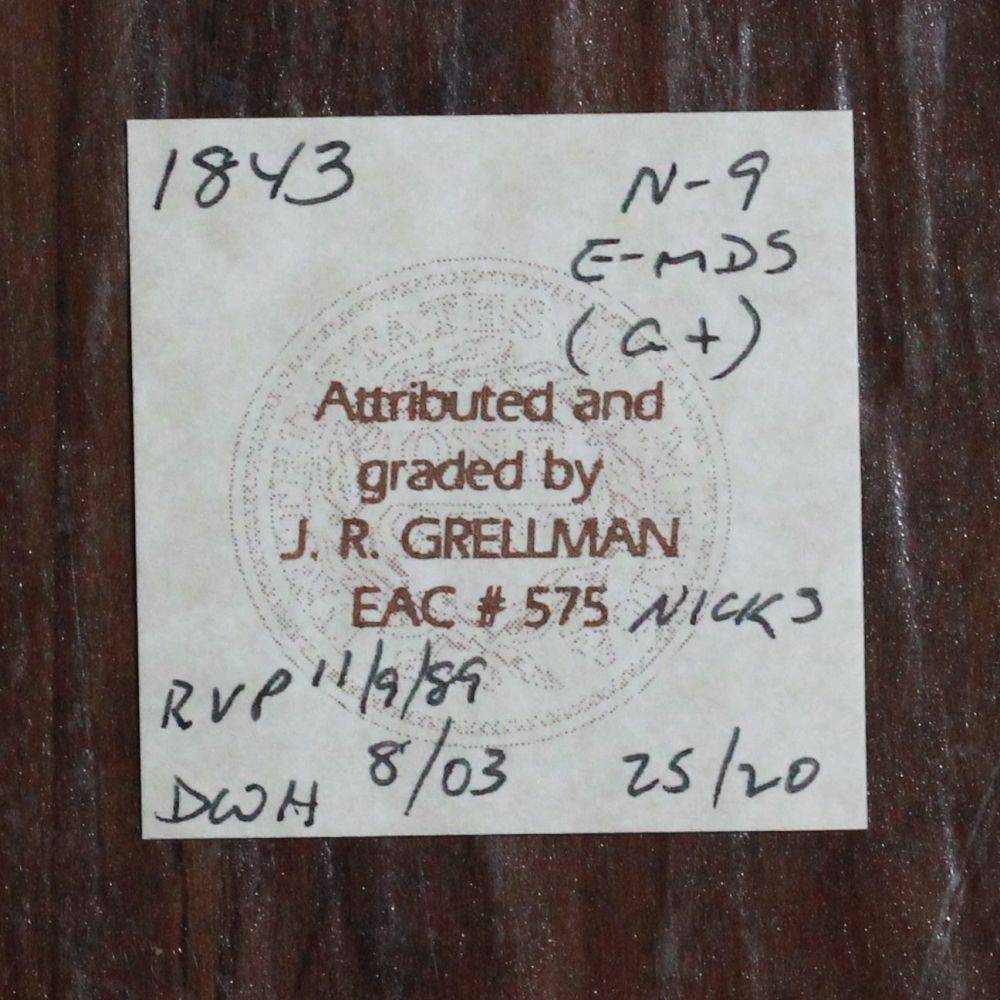 1843 N-9
E-MDS
(a+)
Attributed and
graded by
J. R. GRELLMAN
EAC # 575 NICKS
RVP 11/9/89
DWH 8/03 25/20